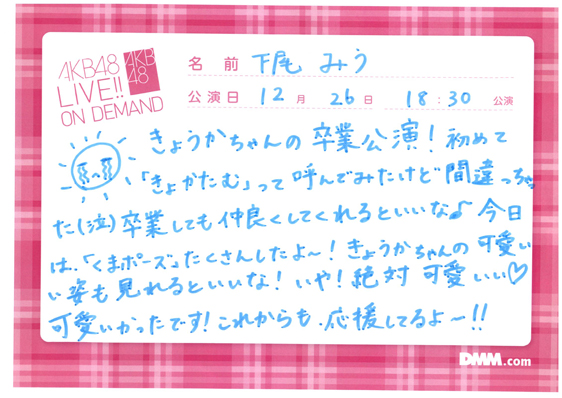 AKB48
LIVE!!
ON DEMAND
AKB
48
名 前 下尾 みう
公演日 12 月 26 日 18:30 公演
きょうかちゃんの卒業公演!初めて
「きょかたむ」って呼んでみたけど間違っちゃ
た(泣)卒業しても仲良くしてくれるといいな♪今日
は、「くまポーズ」たくさんしたよ〜!きょうかちゃんの可愛い
い姿も見れるといいな!いや!絶対可愛いい♡
可愛いかったです!これからも、応援してるよー!!
DMM.com